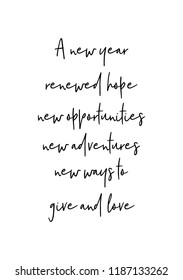 A new year
renewed hope
new opportunities
new adventures
new ways to
give and love
shutterstock.com · 1187133262